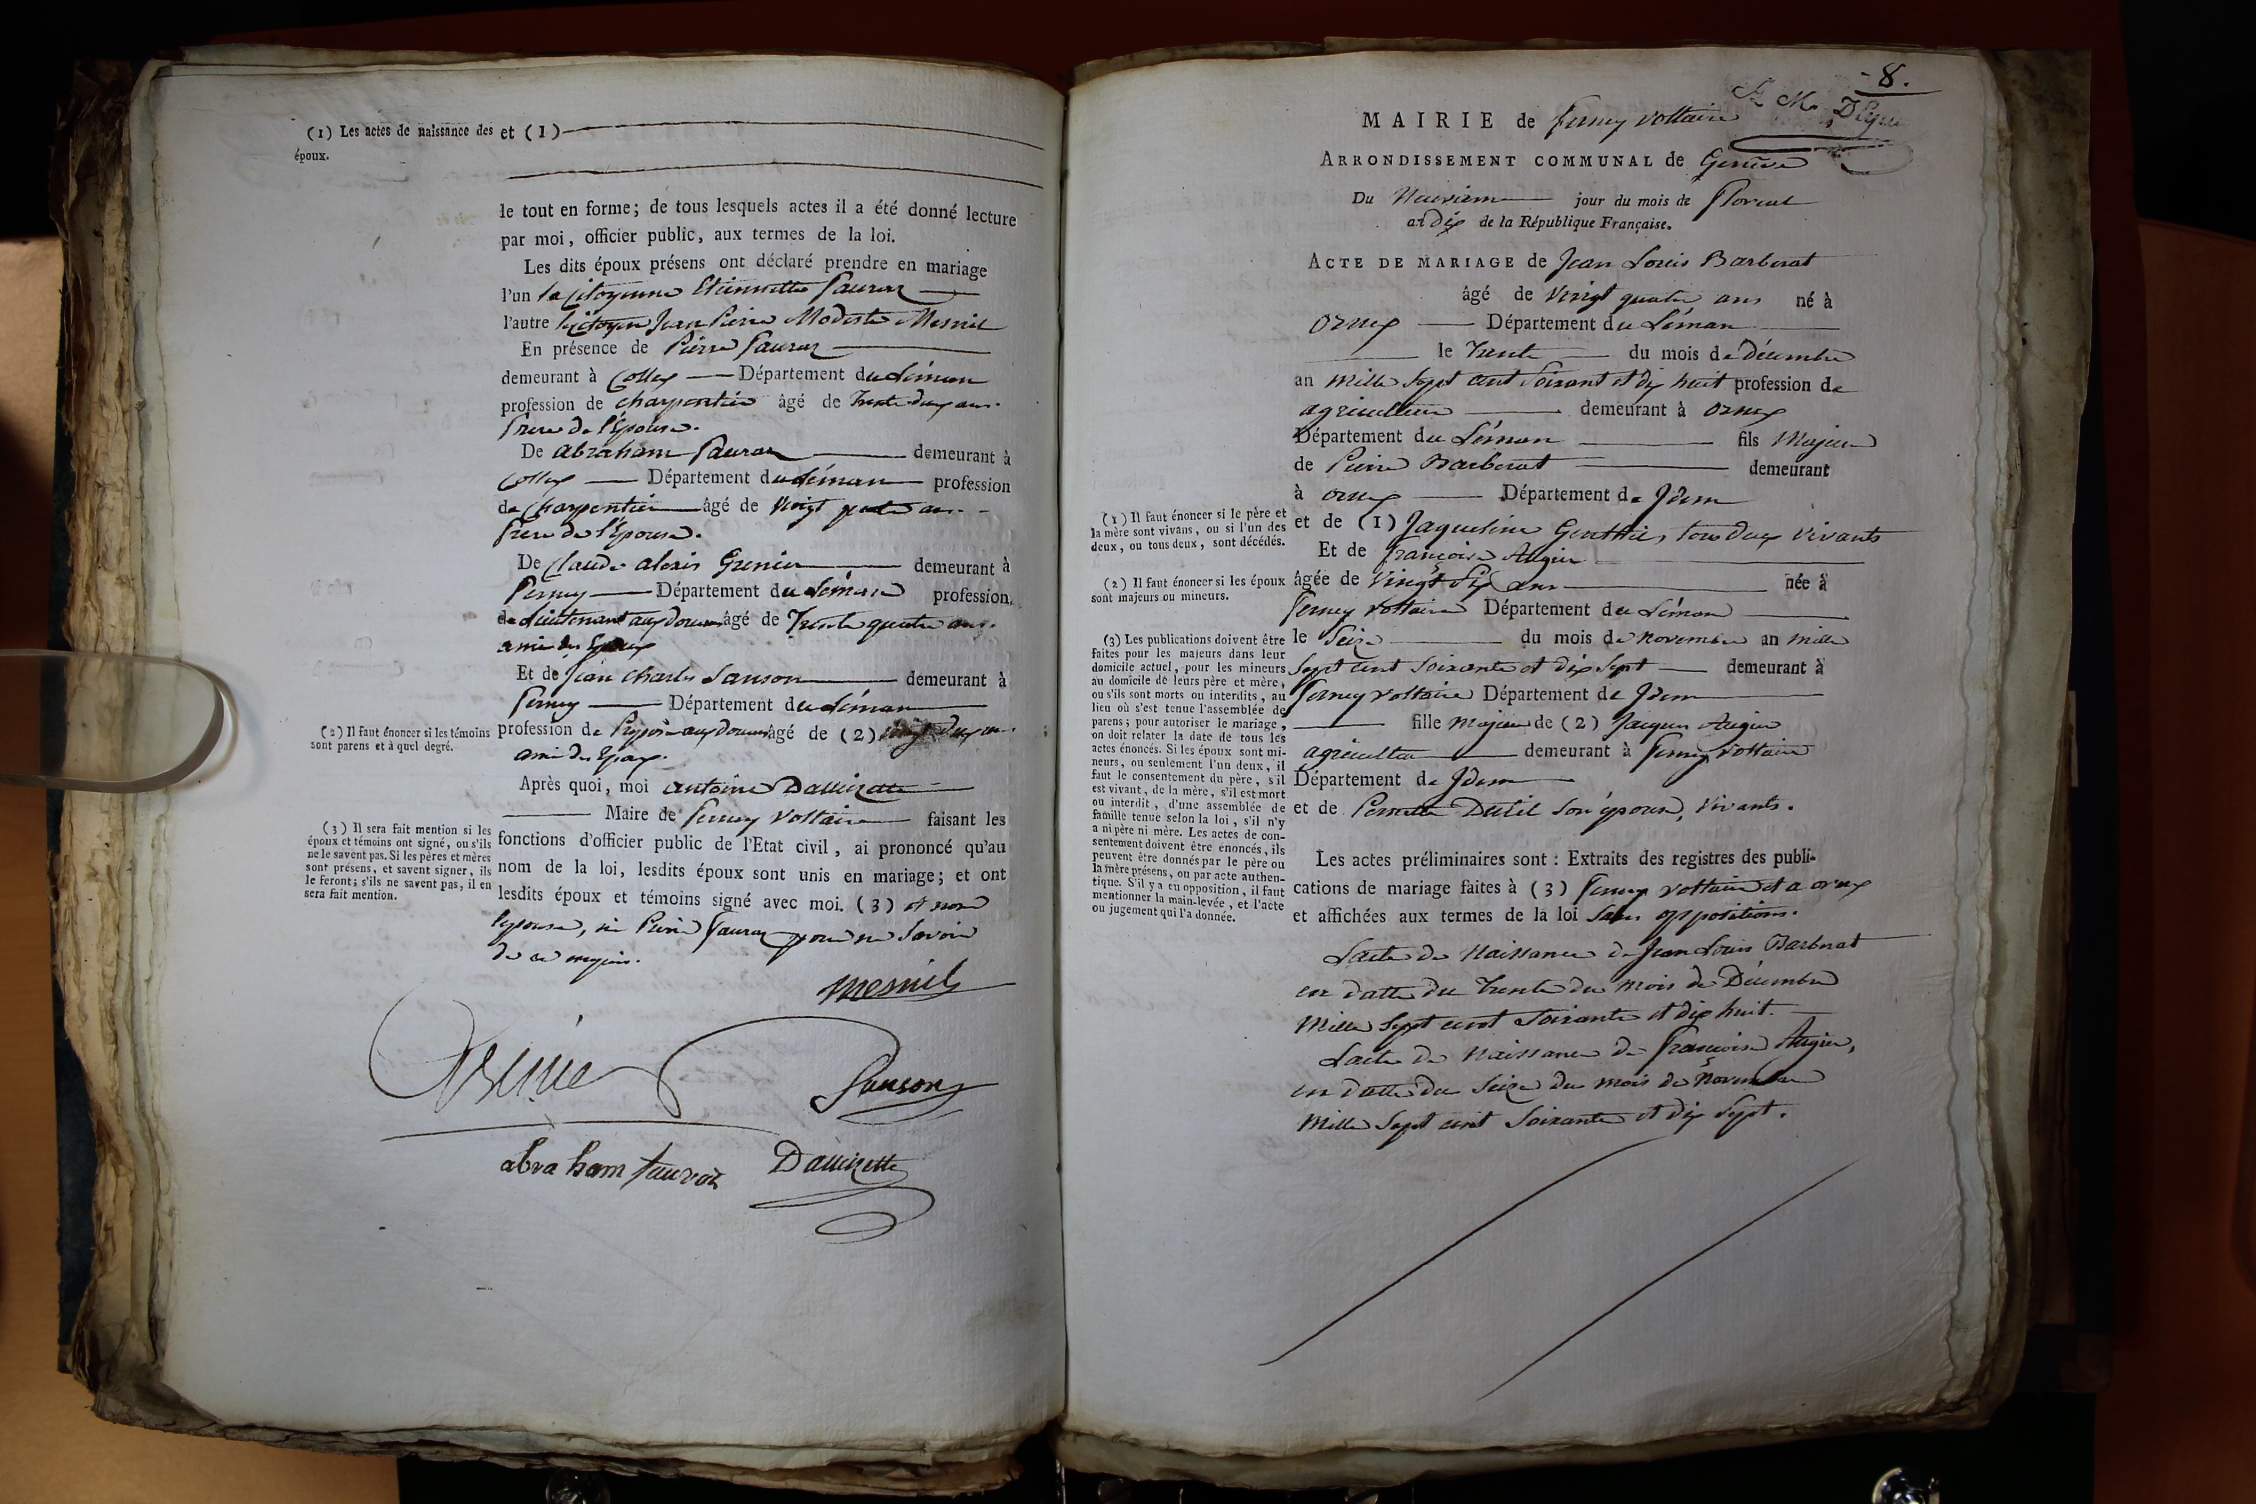 (1) Les actes de naissance des
époux.
et (1)
le tout en forme; de tous lesquels actes il a été donné lecture
par moi, officier public, aux termes de la loi.
Les dits époux présens ont déclaré prendre en mariage
l'un la Citoyenne Etiennette Fauroz
l'autre le Citoyen Jean Pierre Modeste Mesnil
En présence de Pierre Fauroz
demeurant à Collex Département du Léman
profession de charpentier âgé de trente deux ans.
frere de l'Epouse.
De abraham Fauroz demeurant à
Collex Département du Léman profession
de Charpentier âgé de Vingt quatre ans.
frere de l'Epouse.
De Claude alexis Grenier demeurant à
Ferney Département du Léman profession
de Lieutenant aux douanes âgé de Trente quatre ans.
ami des Epoux
Et de jean charles Sanson demeurant à
Ferney Département du Léman
(2) Il faut énoncer si les témoins
sont parens et à quel degré.
profession de Préposé aux douanes âgé de (2) vingt deux ans.
ami des Epoux.
Après quoi, moi antoine Dallizette
Maire de Ferney Voltaire faisant les
(3) Il sera fait mention si les
époux et témoins ont signé, ou s'ils
ne le savent pas. Si les pères et mères
sont présens, et savent signer, ils
le feront; s'ils ne savent pas, il en
sera fait mention.
fonctions d'officier public de l'Etat civil, ai prononcé qu'au
nom de la loi, lesdits époux sont unis en mariage; et ont
lesdits époux et témoins signé avec moi. (3) et non
l'epouse, ni Pierre Fauroz pour ne Savoir
de ce requis.
Mesnil
Grenier
Sanson
abraham fauroz
8.
MAIRIE de Ferney Voltaire
ARRONDISSEMENT COMMUNAL de Genève
Du Neuviem jour du mois de Floreal
an dix de la République Française.
ACTE DE MARIAGE de Jean Louis Barberat
âgé de Vingt quatre ans né à
Ornex Département du Léman
le Trente du mois de Décembre
an Mille Sept cent Soixant et dix huit profession de
agriculteur demeurant à Ornex
Département du Léman fils Majeur
de Pierre Barberat demeurant
à Ornex Département de Idem
(1) Il faut énoncer si le père et
la mère sont vivans, ou si l'un des
deux, ou tous deux, sont décédés.
et de (1) Jaqueline Genthie, tous deux vivants
Et de françoise Augier
(2) Il faut énoncer si les époux
sont majeurs ou mineurs.
âgée de Vingt Six ans née à
Ferney Voltaire Département du Léman
(3) Les publications doivent être
faites pour les majeurs dans leur
domicile actuel, pour les mineurs
au domicile de leurs père et mère,
ou s'ils sont morts ou interdits, au
lieu où s'est tenue l'assemblée de
parens; pour autoriser le mariage,
on doit relater la date de tous les
actes énoncés. Si les époux sont mi-
neurs, ou seulement l'un deux, il
faut le consentement du père, s'il
est vivant, de la mère, s'il est mort
ou interdit, d'une assemblée de
famille tenue selon la loi, s'il n'y
a ni père ni mère. Les actes de con-
sentement doivent être énoncés, ils
peuvent être donnés par le père ou
la mère présens, ou par acte authen-
tique. S'il y a eu opposition, il faut
mentionner la main-levée, et l'acte
ou jugement qui l'a donnée.
le Seize du mois de Novembre an mille
Sept cent Soixante et dix Sept demeurant à
Ferney Voltaire Département de Idem
fille Majeur de (2) Jacques Augier
agriculteur demeurant à Ferney Voltaire
Département de Idem
et de Pernette Dutil Son épouse, vivants.
Les actes préliminaires sont: Extraits des registres des publi-
cations de mariage faites à (3) Ferney Voltaire et a ornex
et affichées aux termes de la loi Sans oppositions.
Lacte de Naissance de Jean Louis Barberat
en datte du Trente du mois de Décembre
Mille Sept cent Soixante et dix huit.
Lacte de Naissance de françoise Augier,
en datte du Seize du mois de Novembre
Mille Sept cent Soixante et dix Sept.